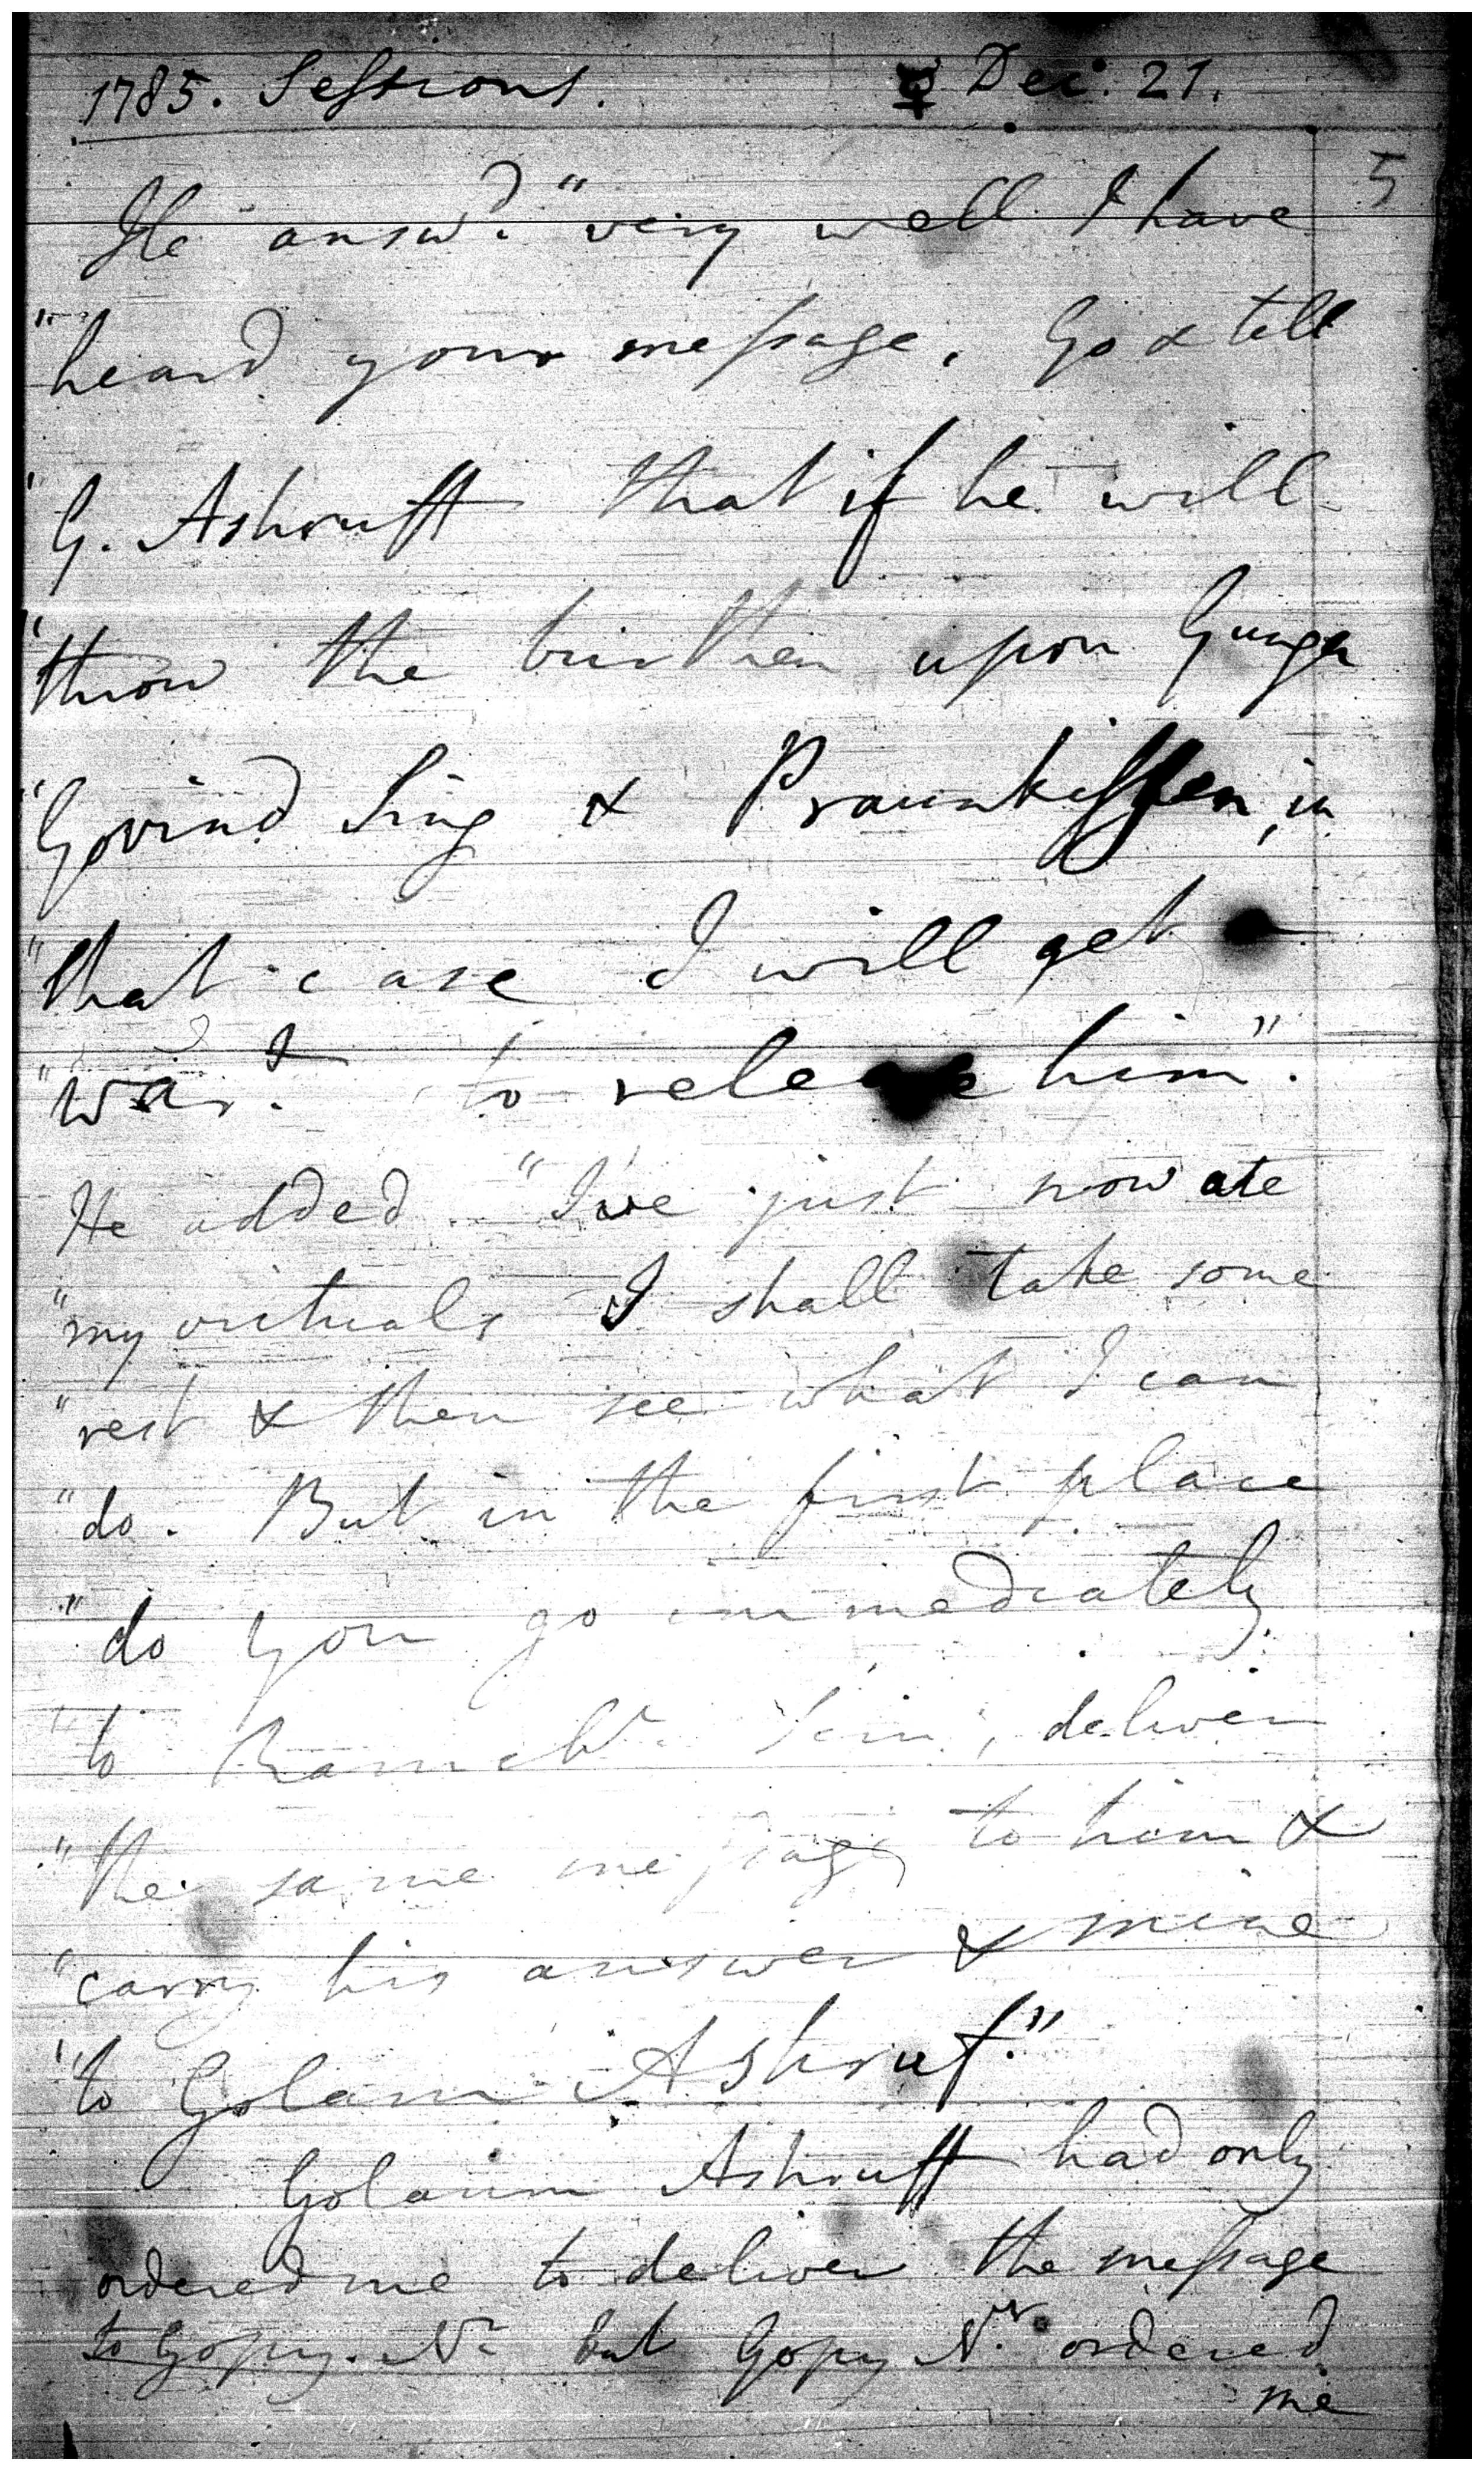 1785. Sessions. ♀ Dec: 21.
5
He answd. "very well I have
"heard your message. Go & tell
"G. Ashruff that if he will
"throw the burthen upon Gunga
"Govind Sing & Praunkissen, in
"that case I will get
"wart. to release him".
He added "I've just now ate
"my victuals I shall take some
"rest & then see what I can
"do. But in the first place
"do you go immediately
"to deliver
"the same message to him &
"carry his answer & mine
"to Golam Ashruf."
Golaum Ashruff had only
ordered me to deliver the message
to Gopy. Nr. but Gopy Nr. ordered
me